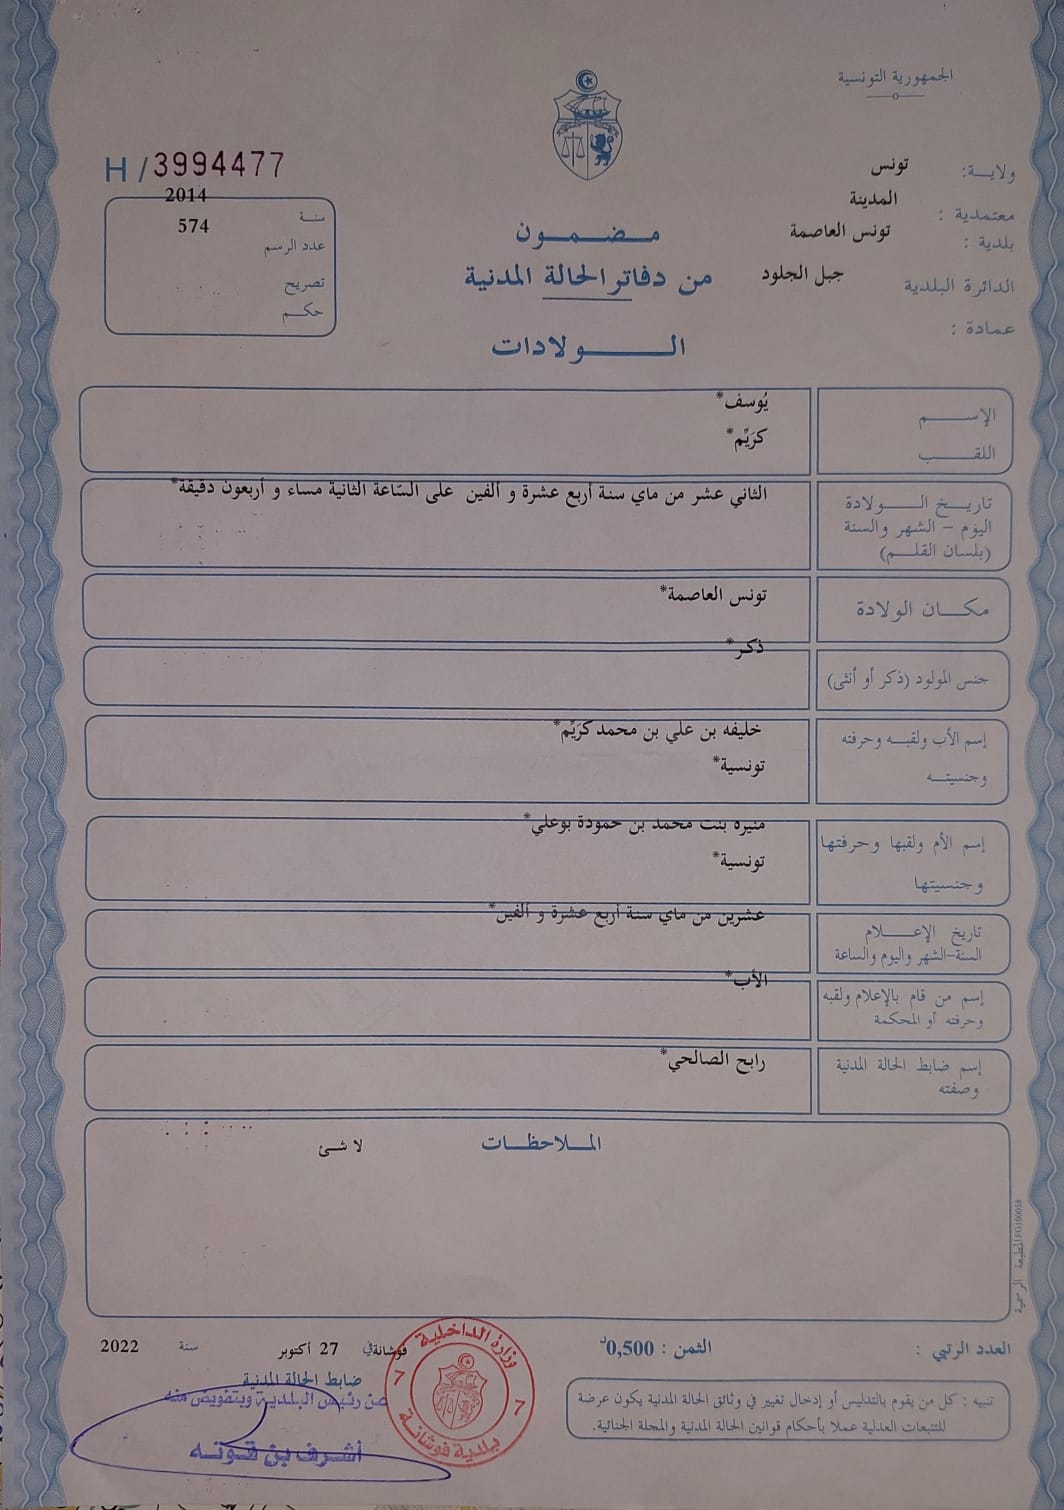 الجمهورية التونسية
ولاية: تونس
معتمدية : المدينة
بلدية : تونس العاصمة
الدائرة البلدية جبل الجلود
عمادة :
H/3994477
سنة 2014
عدد الرسم 574
تصريح
حكم
مضمون
من دفاتر الحالة المدنية
الولادات
الإسم يُوسف*
اللقب كرَيِّم*
تاريخ الولادة الثاني عشر من ماي سنة أربع عشرة و ألفين على السّاعة الثانية مساء و أربعون دقيقة*
اليوم - الشهر والسنة
(بلسان القلم)
مكان الولادة تونس العاصمة*
ذكر*
جنس المولود (ذكر أو أنثى)
إسم الأب ولقبه وحرفته خليفه بن علي بن محمد كرَيِّم*
وجنسيته تونسية*
منيره بنت محمد بن حمودة بوعلي*
إسم الأم ولقبها وحرفتها
وجنسيتها تونسية*
عشرين من ماي سنة أربع عشرة و ألفين*
تاريخ الإعلام
السنة-الشهر واليوم والساعة
الأب*
إسم من قام بالإعلام ولقبه
وحرفته أو المحكمة
إسم ضابط الحالة المدنية رابح الصالحي*
وصفته
الملاحظات
لا شئ
المطبعة الرسمية
العدد الرتبي :
الثمن : 0,500د
فوشانة في 27 أكتوبر سنة 2022
ضابط الحالة المدنية
عن رئيس البلدية وبتفويض منه
أشرف بن قوته
وزارة الداخلية
7 7
بلدية فوشانة
تنبيه : كل من يقوم بالتدليس أو إدخال تغيير في وثائق الحالة المدنية يكون عرضة
للتتبعات العدلية عملا بأحكام قوانين الحالة المدنية والمجلة الجنائية.